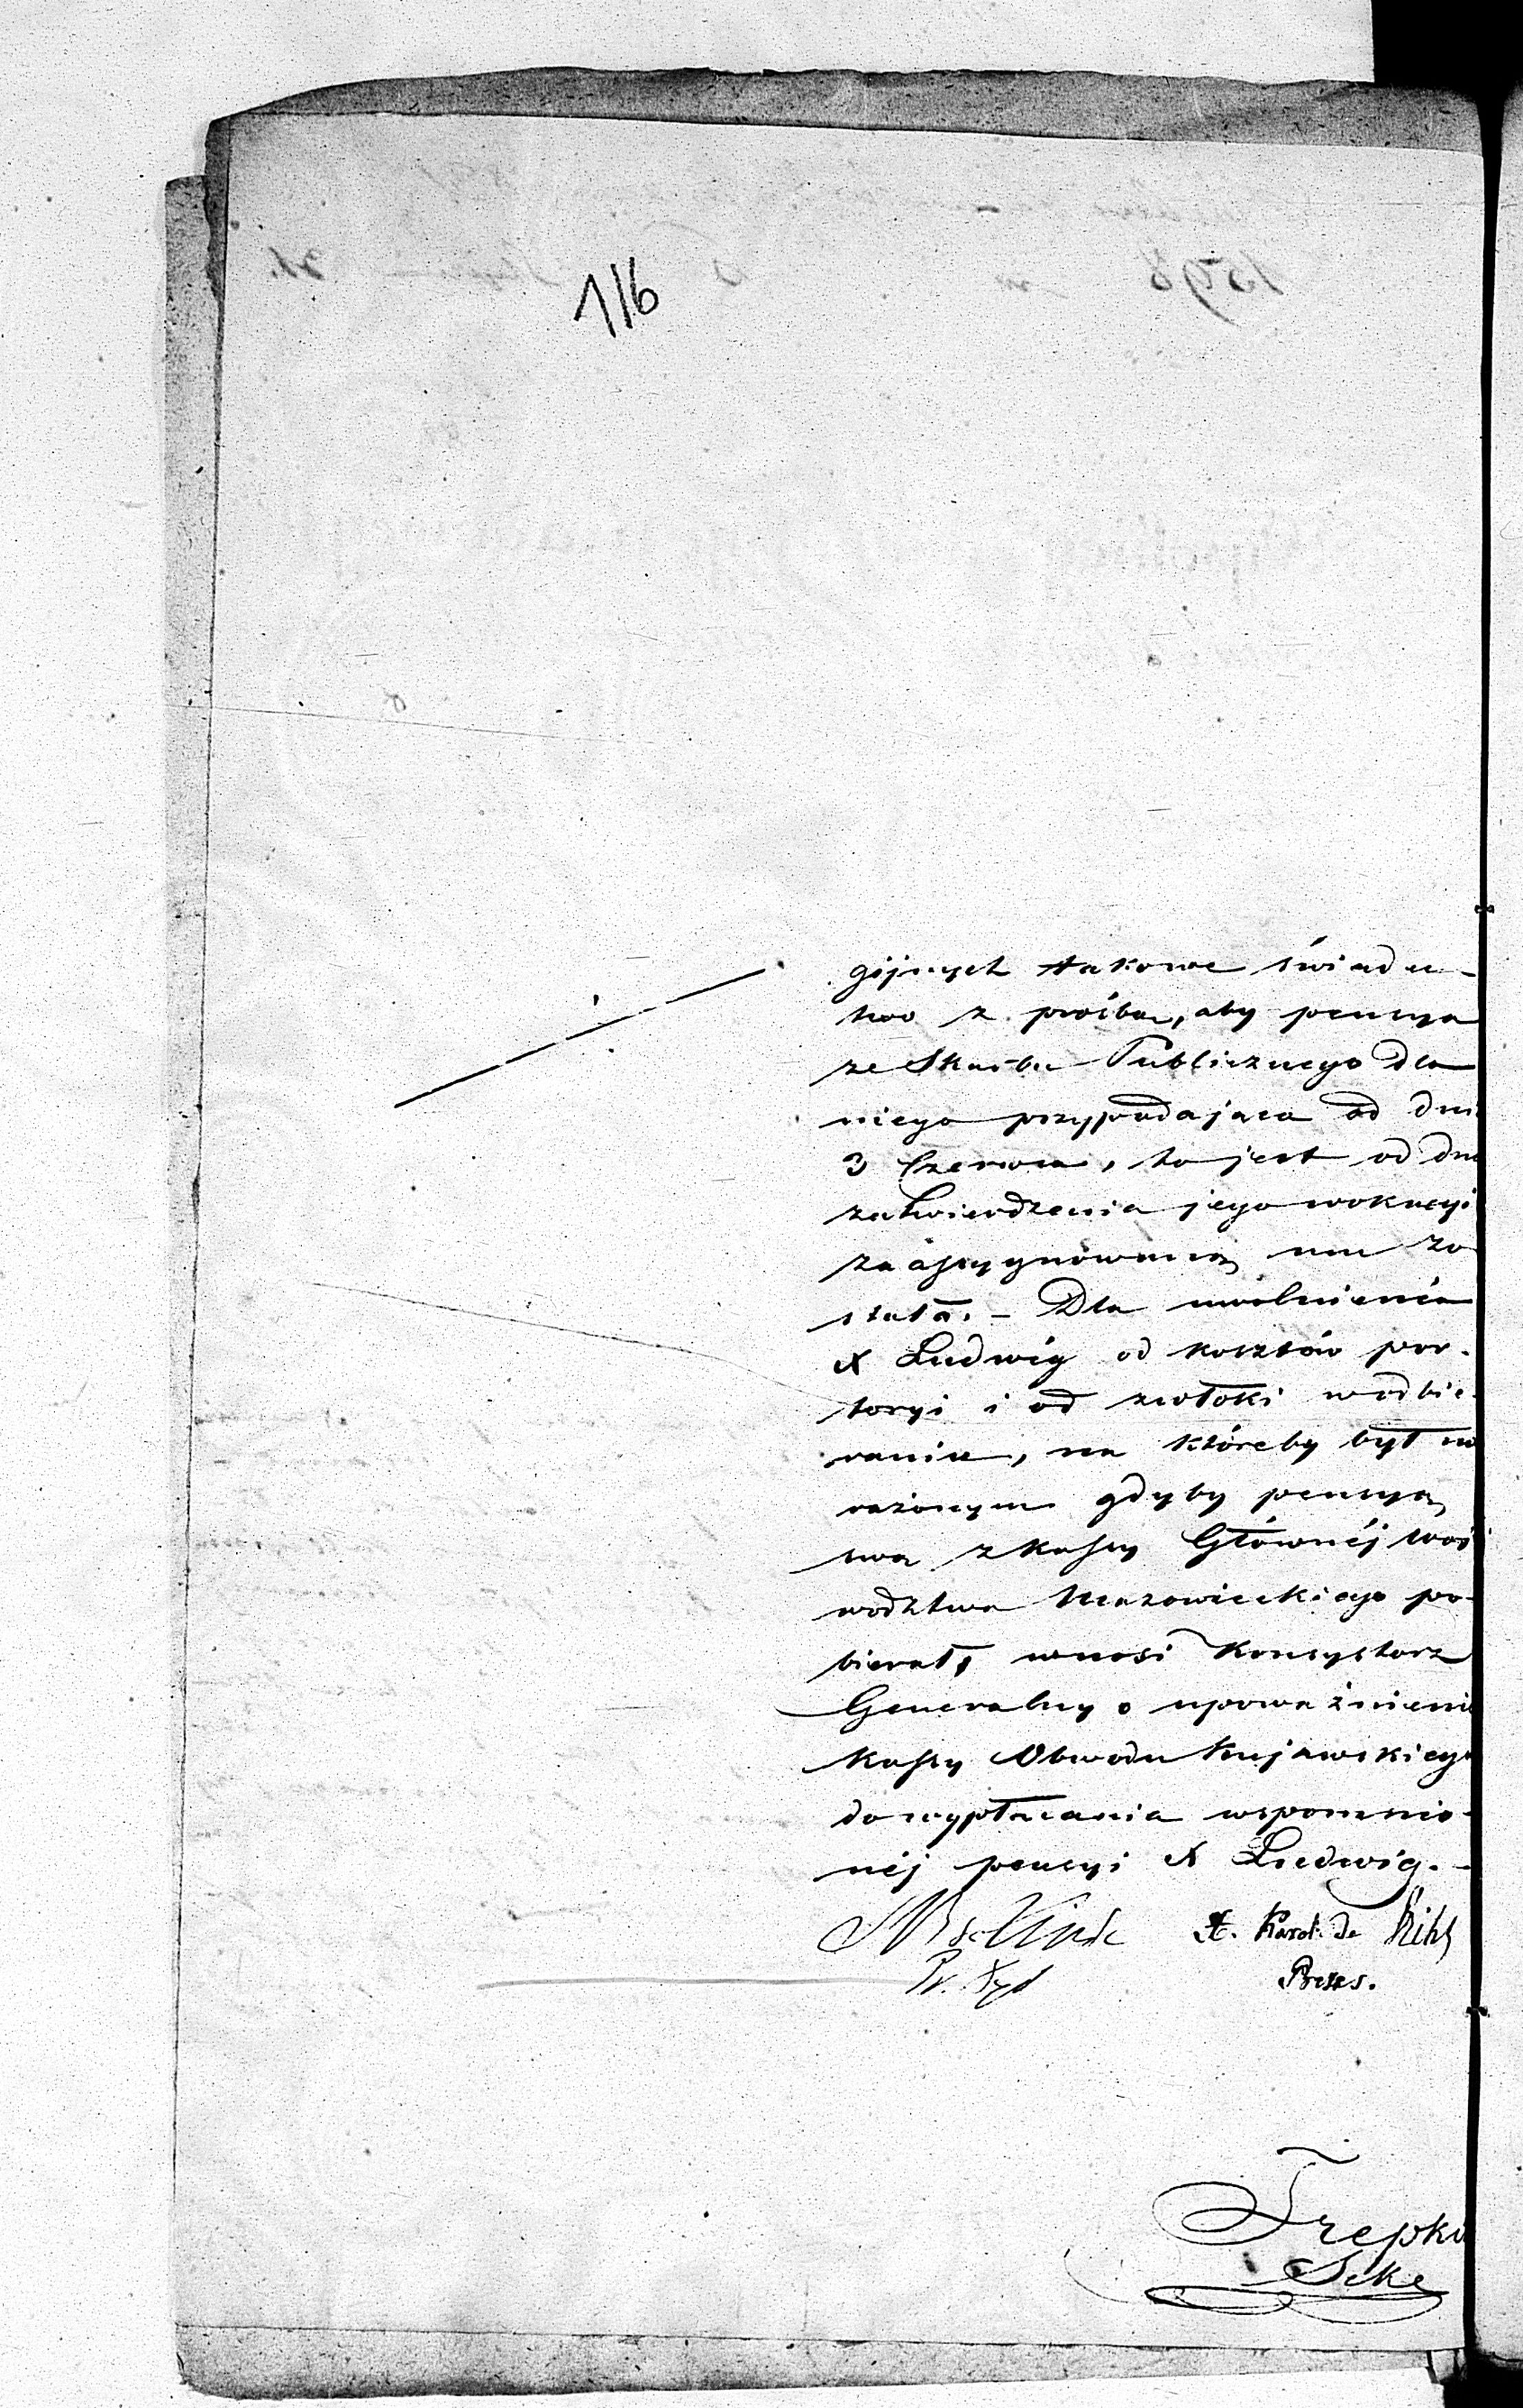 116
gijnych takowe świadec-
two z prośbą, aby pensya
ze Skarbu Publicznego dla
niego przypadająca od dni
3 Czerwca, to jest od dn
zatwierdzenia jego wokacyi
zaassygnowaną mu zo
stała. – Dla uwolnienia
X Ludwig od kosztów por-
toryi i od zwłoki w odbie-
raniu, na któreby był na
rażonym gdyby pensyą
swą z kassy Głównéj Woj
wodztwa Mazowieckiego po-
bierał, wnosi Konsystorz
Generalny o upoważnieni
kassy Obwodu Kujawskiego
do wypłacania wspomnio-
néj pensyi X Ludwig. –
X. Karol de
Prezes.
Trepka
Sekr